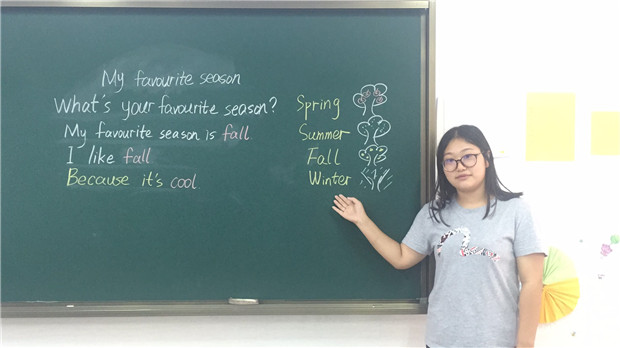 My favourite season
What's your favourite season?
My favourite season is fall.
I like fall.
Because it's cool.
Spring
Summer
Fall
Winter